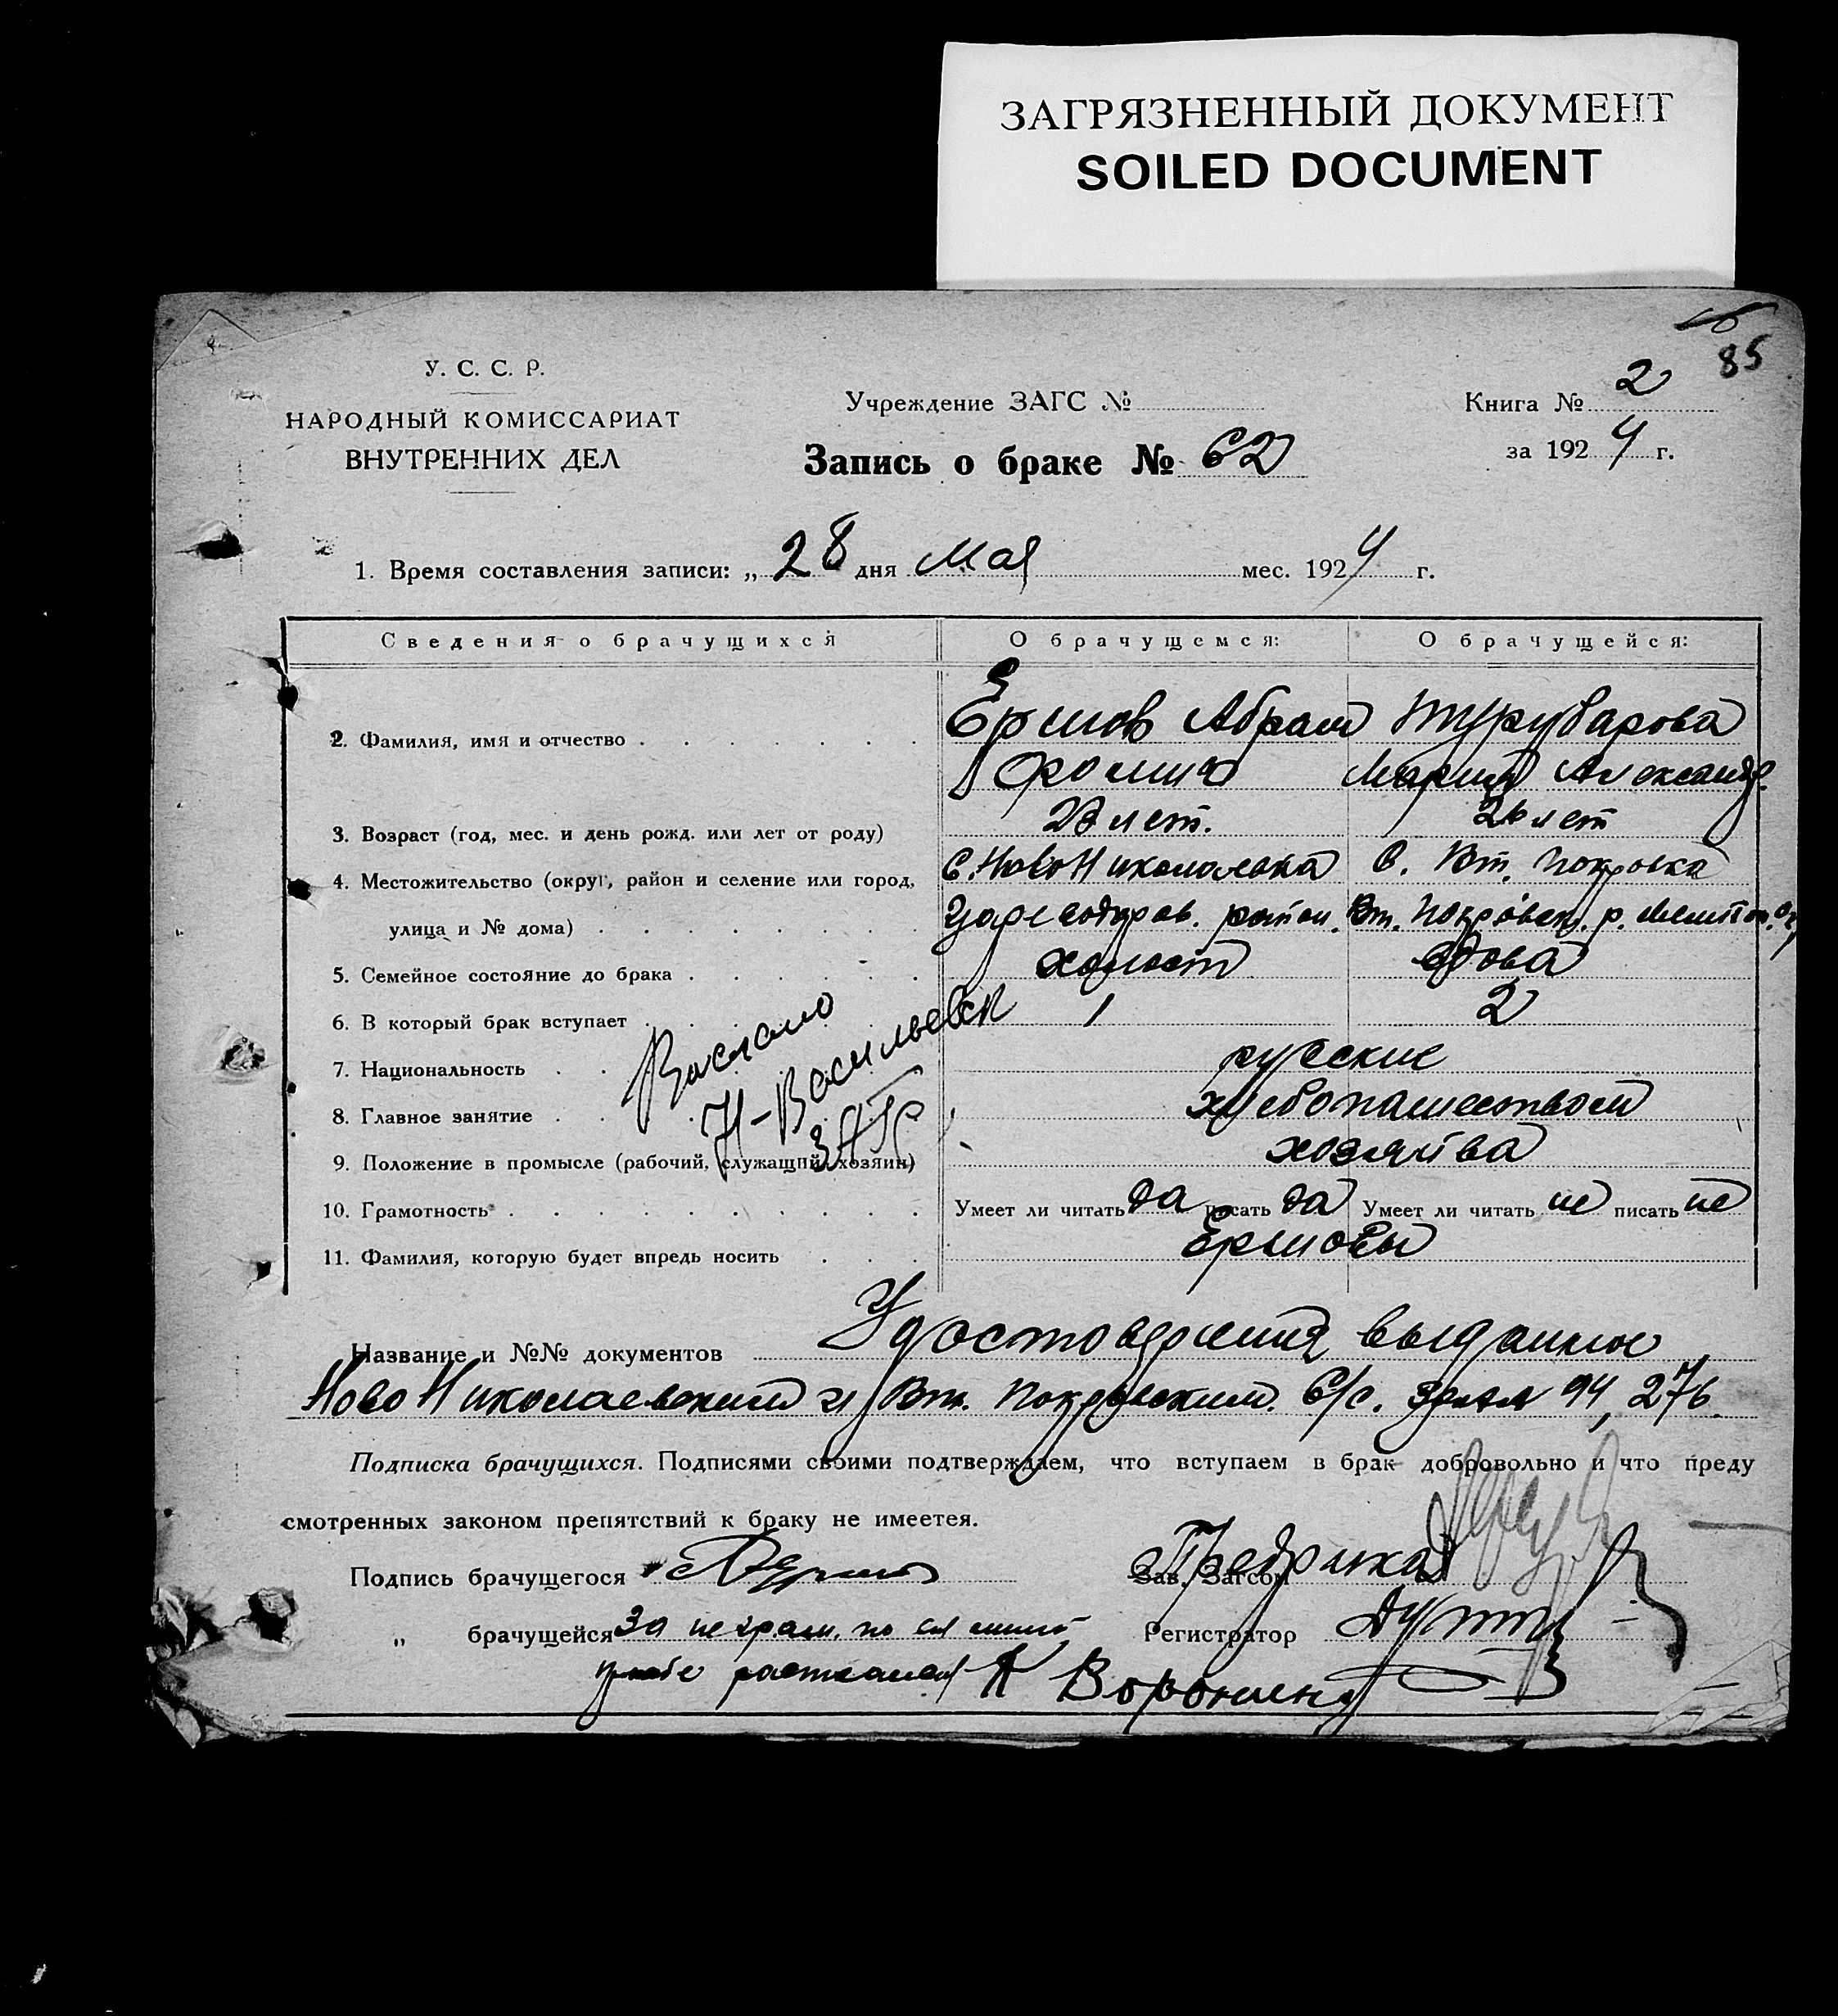 ЗАГРЯЗНЕННЫЙ ДОКУМЕНТ
SOILED DOCUMENT
85
У. С. С. Р.
НАРОДНЫЙ КОМИССАРИАТ
ВНУТРЕННИХ ДЕЛ
Учреждение ЗАГС №
Запись о браке № 62
Книга № 2
за 1924 г.
1. Время составления записи: „ 28 дня Мая мес. 1924 г.
Сведения о брачущихся О брачущемся: О брачущейся:
2. Фамилия, имя и отчество Ершов Абрам
Фомич Мария Александр.
3. Возраст (год, мес. и день рожд. или лет от роду) лет. 26 лет
4. Местожительство (округ, район и селение или город, С. Ново Николаевка С. Вт. Покровка
улица и № дома) район. Вт. Покровск. р.
5. Семейное состояние до брака холост вдова
6. В который брак вступает 1 2
7. Национальность русские
8. Главное занятие хлебопашеством
9. Положение в промысле (рабочий, служащий, хозяин) хозяйва
10. Грамотность Умеет ли читать да писать да Умеет ли читать не писать не
11. Фамилия, которую будет впредь носить Ершовы
Выслано
Н-Васильевск
Название и №№ документов Удостоверения выданные
Ново Николаевским и Вт. Покровским С/с. 94, 276.
Подписка брачущихся. Подписями своими подтверждаем, что вступаем в брак добровольно и что преду
смотренных законом препятствий к браку не имеется.
Подпись брачущегося Зав. Загсом
„ брачущейся За неграм. по ея личной Регистратор
прозбе росписался А Воронин